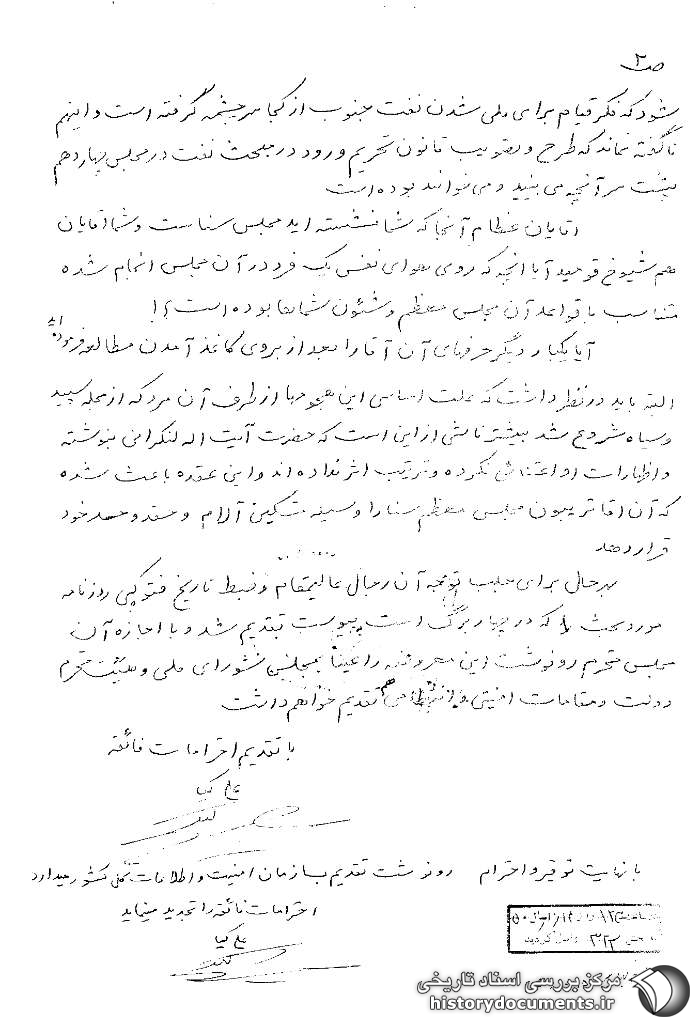 ص ۲
شود که فکر قیام برای ملی شدن نفت جنوب از کجا سرچشمه گرفته است و اینهم
ناگفته نماند که طرح و تصویب قانون تحریم ورود در مبحث نفت در مجلس چهاردهم
پشت سر آنچه می بینید و می خوانید بوده است
آقایان عظام آنجا که شما نشسته اید مجلس سناست و شما آقایان
هم شیوخ قومید آیا آنچه که روی هوای نفس یک فرد در آن مجلس انجام شده
متناسب با قواعد آن مجلس معظم و شئون شماها بوده است؟!
آیا یکبار دیگر حرفهای آن آقا را بعد از بروی کاغذ آمدن مطالعه فرموده اید
البته باید در نظر داشت که علت اساسی این هجومها از طرف آن مرد که از مجله سپید
و سیاه شروع شد بیشتر ناشی از این است که حضرت آیت اله لنکرانی بنوشته
و اظهارات او اعتنائی نکرده و ترتیب اثر نداده اند و این عقده باعث شده
که آن آقا تریبون مجلس معظم سنا را وسیله تسکین آلام و حقد و حسد خود
قرار دهد
بهرحال برای جلب توجه آن رجال عالیمقام و ضبط تاریخ فتوکپی روزنامه
مورد بحث را که در چهار برگ است بپیوست تقدیم شد و با اجازه آن
مجلس محترم رونوشت این معروضه را عیناً بمجلس شورای ملی و هیئت محترم
دولت و مقامات امنیتی و انتظامی هم تقدیم خواهم داشت
با تقدیم احترامات فائقه
علی کیا
با نهایت توقیر و احترام رونوشت تقدیم سازمان امنیت و اطلاعات کشور میدارد
احترامات فائقه را تجدید مینماید
علی کیا
۳۲۳
مرکز بررسی اسناد تاریخی
historydocuments.ir